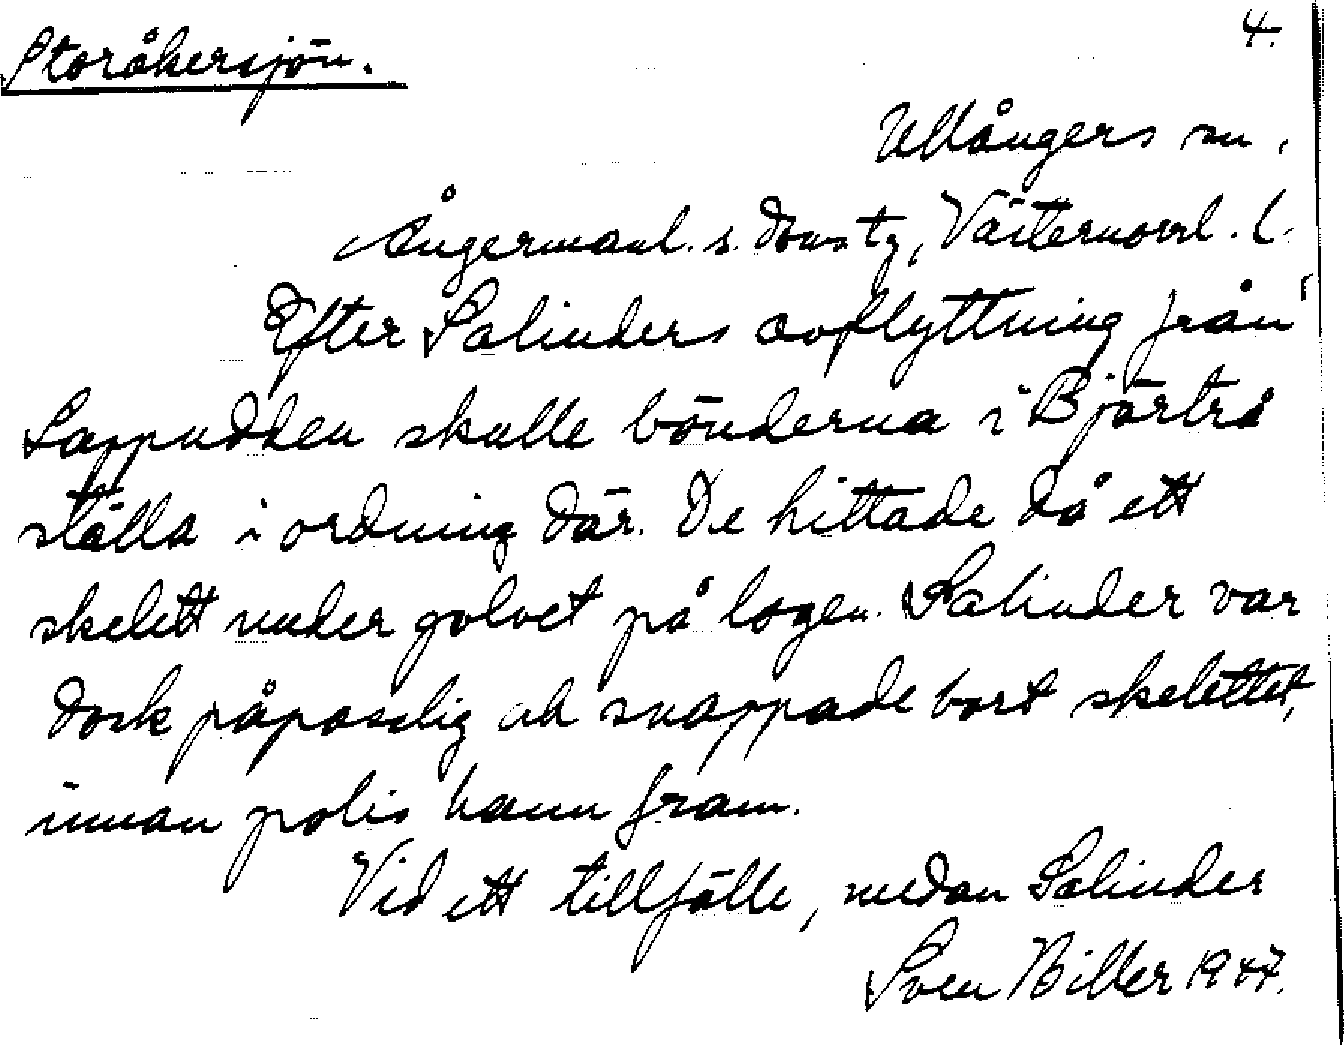 Storåkersjön.
4.
Ullångers sn.
Ångermanl. s. domstg, Västernorrl. l.
Efter Salinders avflyttning från
Lappudden skulle bönderna i Bjärtrå
ställa i ordning där. De hittade då ett
skelett under golvet på logen. Salinder var
dock påpasslig och snappade bort skelettet,
innan polis hann fram.
Vid ett tillfälle, medan Salinder
Sven Biller 1947.